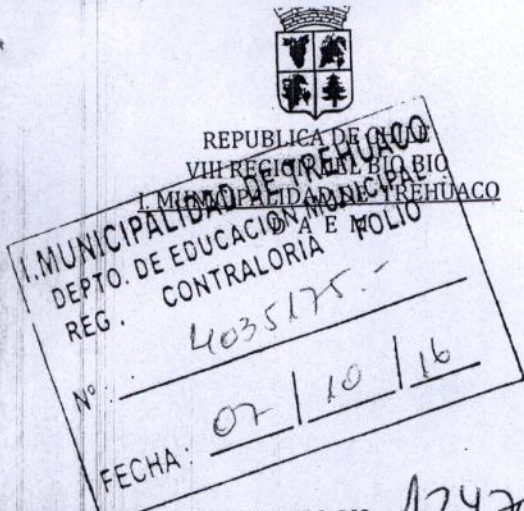 REPUBLICA DE CHILE
VIII REGION DEL BIO BIO
I. MUNICIPALIDAD DE TREHUACO
D A E M
I. MUNICIPALIDAD DE TREHUACO
DEPTO. DE EDUCACION MUNICIPAL
REG. CONTRALORIA FOLIO
Nº: 4035175.-
FECHA: 07 / 10 / 16